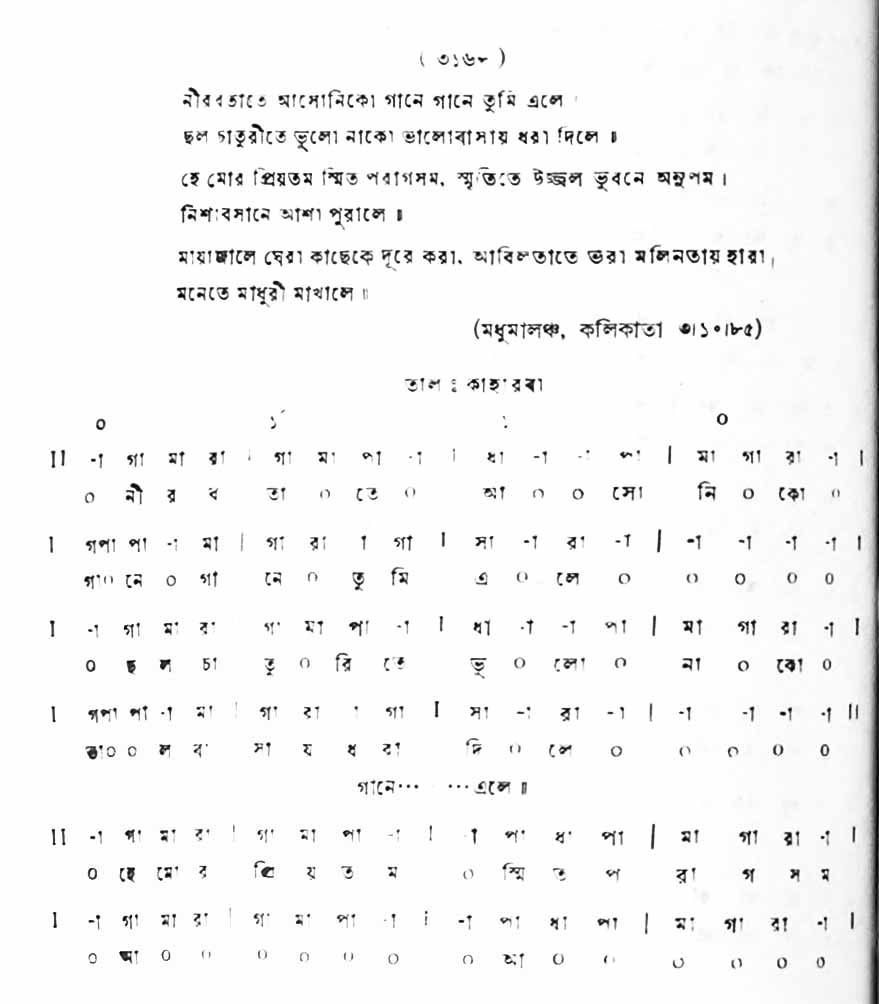 ( ৩১৬৮ )
নীরবতাতে আসোনিকো গানে গানে তুমি এলে ।
ছল চাতুরীতে ভুলো নাকো ভালোবাসায় ধরা দিলে ॥
হে মোর প্রিয়তম স্মিত পরাগসম, স্মৃতিতে উজ্জ্বল ভুবনে অনুপম ।
নিশাবসানে আশা পুরালে ॥
মায়াজালে ঘেরা কাছেকে দূরে করা, আবিলতাতে ভরা মলিনতায় হারা,
মনেতে মাধুরী মাখালে ॥
(মধুমালঞ্চ, কলিকাতা ৩।১০।৮৫)
তাল : কাহারবা
০ ১´ ১ ০
II -া গা মা রা | গা মা পা -া | ধা -া -া পা | মা গা রা -া I
০ নী র ব তা ০ তে ০ আ ০ ০ সো নি ০ কো ০
I গপা পা -া মা | গা রা া গা I সা -া রা -া | -া -া -া -া I
গা০ নে ০ গা নে ০ তু মি এ ০ লে ০ ০ ০ ০ ০
I -া গা মা রা গা মা পা -া I ধা -া -া পা | মা গা রা -া I
০ ছ ল চা তু ০ রি তে ভু ০ লো ০ না ০ কো ০
I গপা পা -া মা | গা রা া গা I সা -া রা -া | -া -া -া -া II
ভা০ ০ ল বা সা য় ধ রা দি ০ লে ০ ০ ০ ০ ০
গানে··· ···এলে ॥
II -া গা মা রা | গা মা পা -া I া পা ধা পা | মা গা রা -া I
০ হে মো র প্রি য় ত ম ০ স্মি ত প রা গ স ম
I -া গা মা রা | গা মা পা -া I -া পা ধা পা | মা গা রা -া I
০ আ ০ ০ ০ ০ ০ ০ ০ আ ০ ০ ০ ০ ০ ০